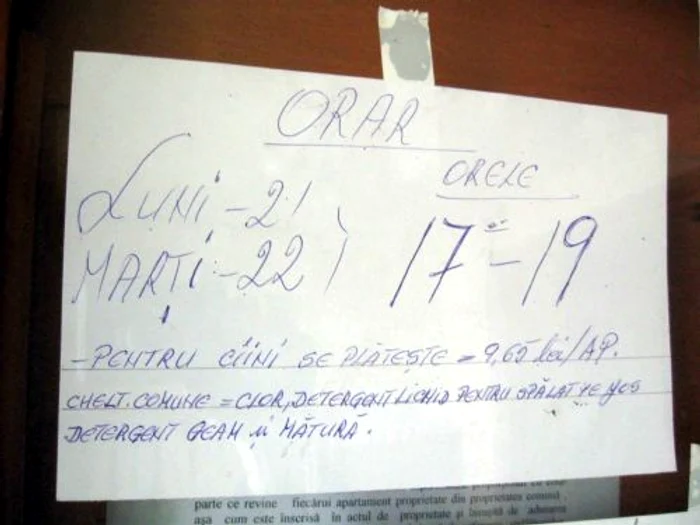 ORAR
ORELE
LUNI - 21
MARȚI - 22
17 00 - 19
- PENTRU CÎINI SE PLĂTEȘTE = 9,65 lei/AP.
CHELT. COMUNE = CLOR, DETERGENT LICHID PENTRU SPĂLAT PE JOS
DETERGENT GEAM și MĂTURĂ.
parte ce revine fiecărui apartament proprietate din proprietatea comună,
așa cum este înscrisă în actul de proprietate și însușită de adunarea